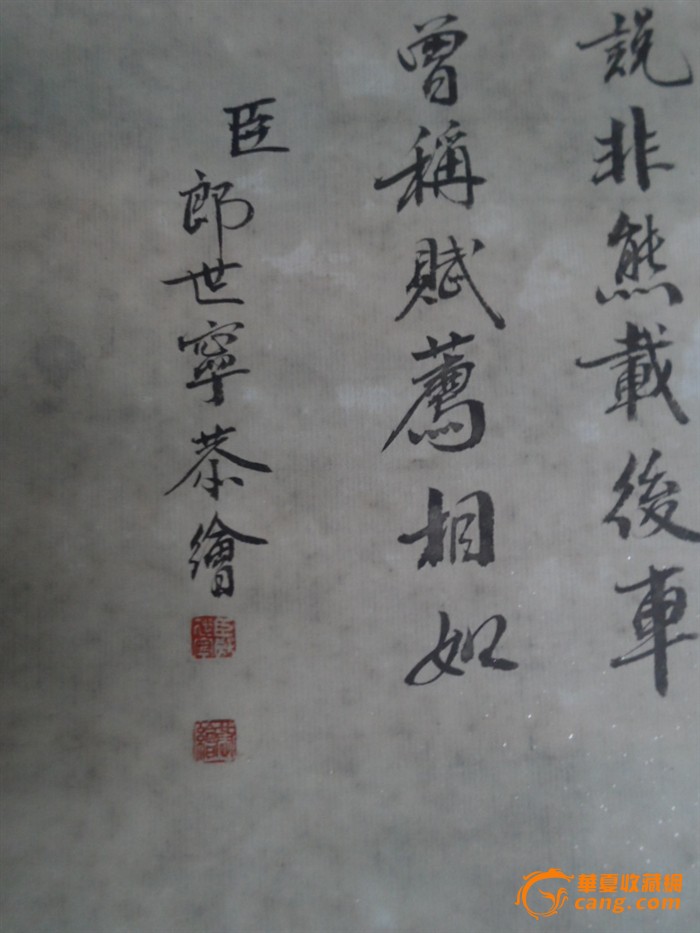 說非熊載後車
曾稱賦薦相如
臣
郎世寧恭繪
華夏收藏網
cang.com